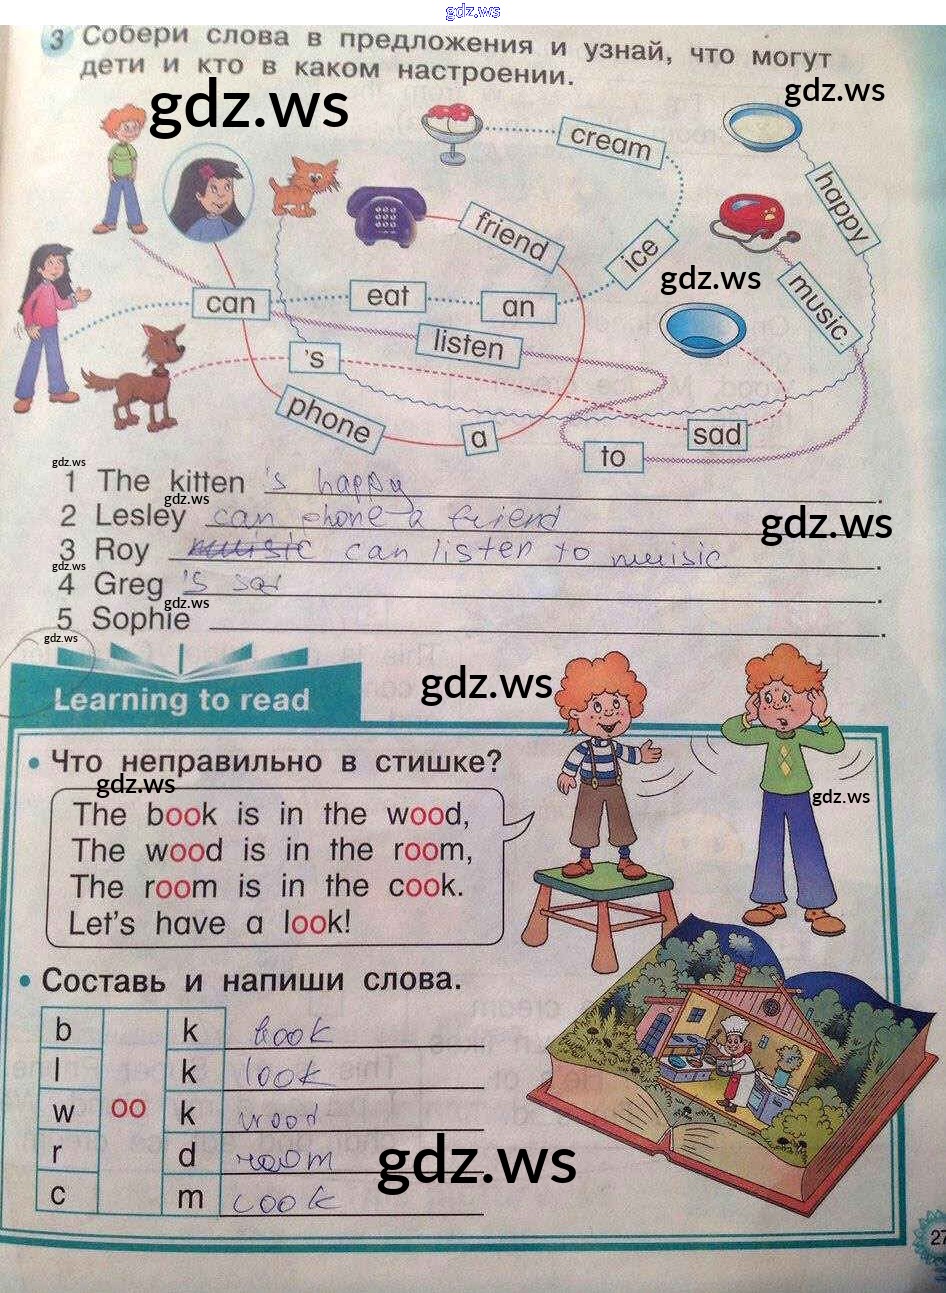 gdz.ws
3 Собери слова в предложения и узнай, что могут
дети и кто в каком настроении.
gdz.ws
gdz.ws
cream
happy
friend
ice
gdz.ws
music
can
eat
an
listen
's
phone
a
sad
to
gdz.ws
1 The kitten 's happy.
gdz.ws
2 Lesley can phone a friend.
gdz.ws
3 Roy can listen to muisic.
gdz.ws
4 Greg 's sad.
gdz.ws
5 Sophie .
gdz.ws
Learning to read
gdz.ws
• Что неправильно в стишке?
gdz.ws
gdz.ws
The book is in the wood,
The wood is in the room,
The room is in the cook.
Let's have a look!
• Составь и напиши слова.
b k book
l k look
w oo k wood
r d room
c m cook
gdz.ws
27